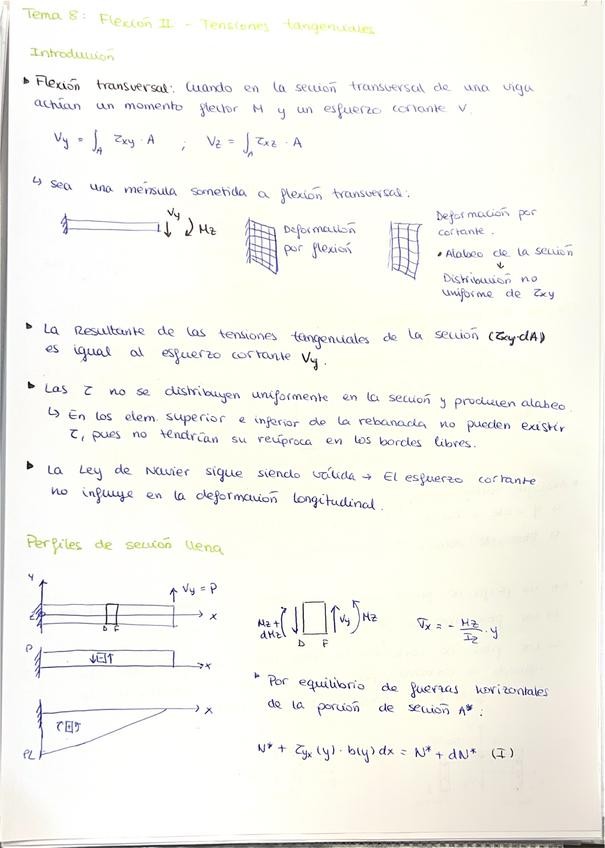 Tema 8: Flexión II - Tensiones tangenciales
Introducción
▸ Flexión transversal: Cuando en la sección transversal de una viga
actúan un momento flector M y un esfuerzo cortante V.
Vy = ∫A τxy · A ; Vz = ∫A τxz · A
↳ Sea una ménsula sometida a flexión transversal:
Vy
Mz
Deformación
por flexión
Deformación por
cortante.
• Alabeo de la sección
↓
Distribución no
uniforme de τxy
▸ La Resultante de las tensiones tangenciales de la sección (τxy·dA)
es igual al esfuerzo cortante Vy.
▸ Las τ no se distribuyen uniformemente en la sección y producen alabeo.
↳ En los elem. superior e inferior de la rebanada no pueden existir
τ, pues no tendrían su recíproca en los bordes libres.
▸ La Ley de Navier sigue siendo válida → El esfuerzo cortante
no influye en la deformación longitudinal.
Perfiles de sección llena
Y
Vy = P
z
x
D F
P
x
x
PL
Mz +
dMz
Vy
Mz
D F
σx = - Mz/Iz · y
▸ Por equilibrio de fuerzas horizontales
de la porción de sección A*:
N* + τyx (y) · b(y) dx = N* + dN* (I)